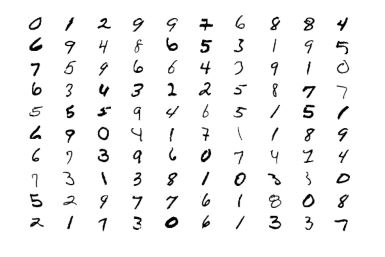 0 1 2 9 9 7 6 8 8 4
6 9 4 8 6 5 3 1 9 5
7 5 9 6 6 4 3 9 1 0
6 3 4 3 2 2 5 8 7 7
5 5 5 9 4 6 5 1 5 1
6 9 0 4 1 7 1 1 8 9
6 7 3 9 6 0 7 4 2 4
7 3 1 3 8 1 0 3 3 0
5 2 9 7 7 6 1 8 0 8
2 1 7 3 0 6 1 3 3 7